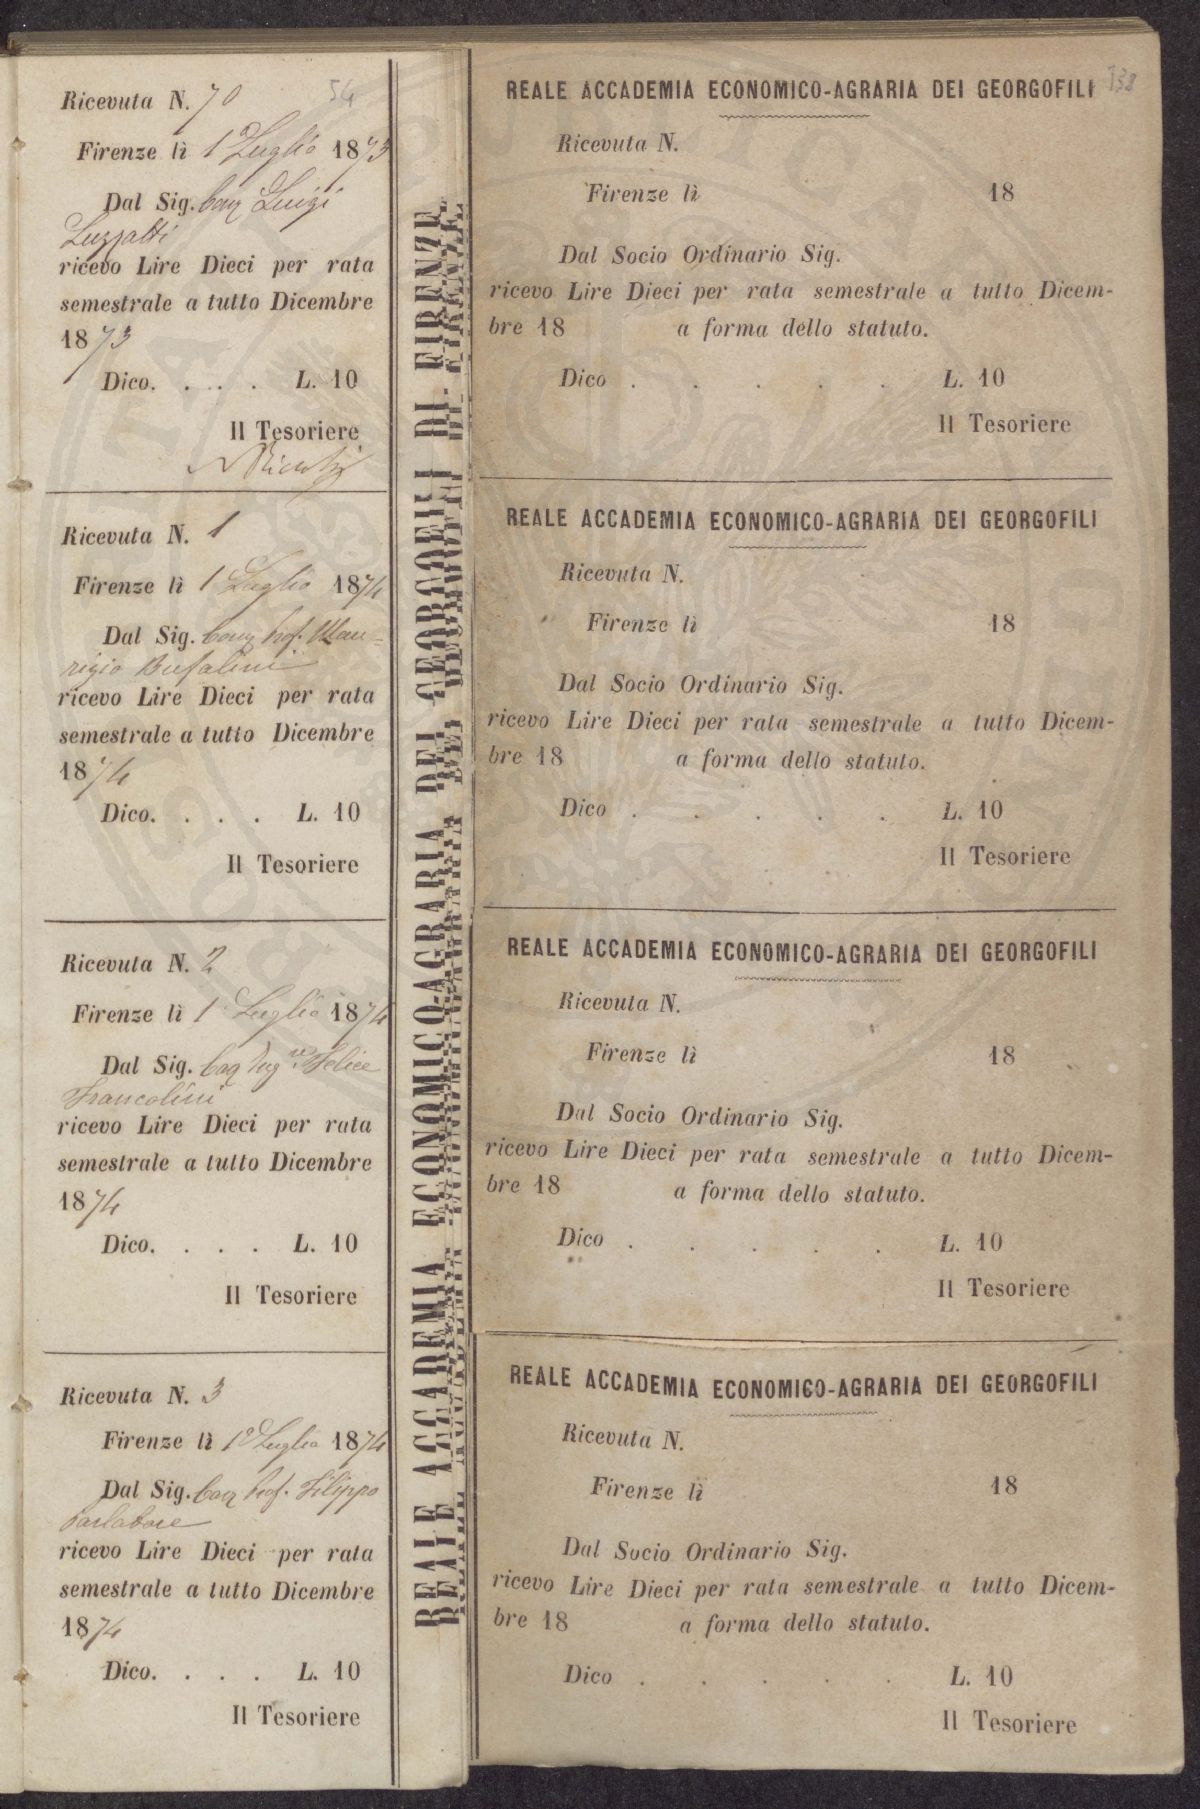 Ricevuta N. 70
54
Firenze lì 1° Luglio 1873
Dal Sig. Cav Luigi
Luzzatti
ricevo Lire Dieci per rata
semestrale a tutto Dicembre
1873
Dico. . . . L. 10
Il Tesoriere
Ricevuta N. 1
Firenze lì 1 Luglio 1874
Dal Sig. Comm Prof. Mau-
rizio Bufalini
ricevo Lire Dieci per rata
semestrale a tutto Dicembre
1874
Dico. . . . L. 10
Il Tesoriere
Ricevuta N. 2
Firenze lì 1 Luglio 1874
Dal Sig. Cav Ing.re Felice
Francolini
ricevo Lire Dieci per rata
semestrale a tutto Dicembre
1874
Dico. . . . L. 10
Il Tesoriere
Ricevuta N. 3
Firenze lì 1° Luglio 1874
Dal Sig. Cav Prof. Filippo
Parlatore
ricevo Lire Dieci per rata
semestrale a tutto Dicembre
1874
Dico. . . . L. 10
Il Tesoriere
REALE ACCADEMIA ECONOMICO-AGRARIA DEI GEORGOFILI DI FIRENZE.
REALE ACCADEMIA ECONOMICO-AGRARIA DEI GEORGOFILI
138
Ricevuta N.
Firenze lì 18
Dal Socio Ordinario Sig.
ricevo Lire Dieci per rata semestrale a tutto Dicem-
bre 18 a forma dello statuto.
Dico . . . . . L. 10
Il Tesoriere
REALE ACCADEMIA ECONOMICO-AGRARIA DEI GEORGOFILI
Ricevuta N.
Firenze lì 18
Dal Socio Ordinario Sig.
ricevo Lire Dieci per rata semestrale a tutto Dicem-
bre 18 a forma dello statuto.
Dico . . . . . L. 10
Il Tesoriere
REALE ACCADEMIA ECONOMICO-AGRARIA DEI GEORGOFILI
Ricevuta N.
Firenze lì 18
Dal Socio Ordinario Sig.
ricevo Lire Dieci per rata semestrale a tutto Dicem-
bre 18 a forma dello statuto.
Dico . . . . . L. 10
Il Tesoriere
REALE ACCADEMIA ECONOMICO-AGRARIA DEI GEORGOFILI
Ricevuta N.
Firenze lì 18
Dal Socio Ordinario Sig.
ricevo Lire Dieci per rata semestrale a tutto Dicem-
bre 18 a forma dello statuto.
Dico . . . . . L. 10
Il Tesoriere